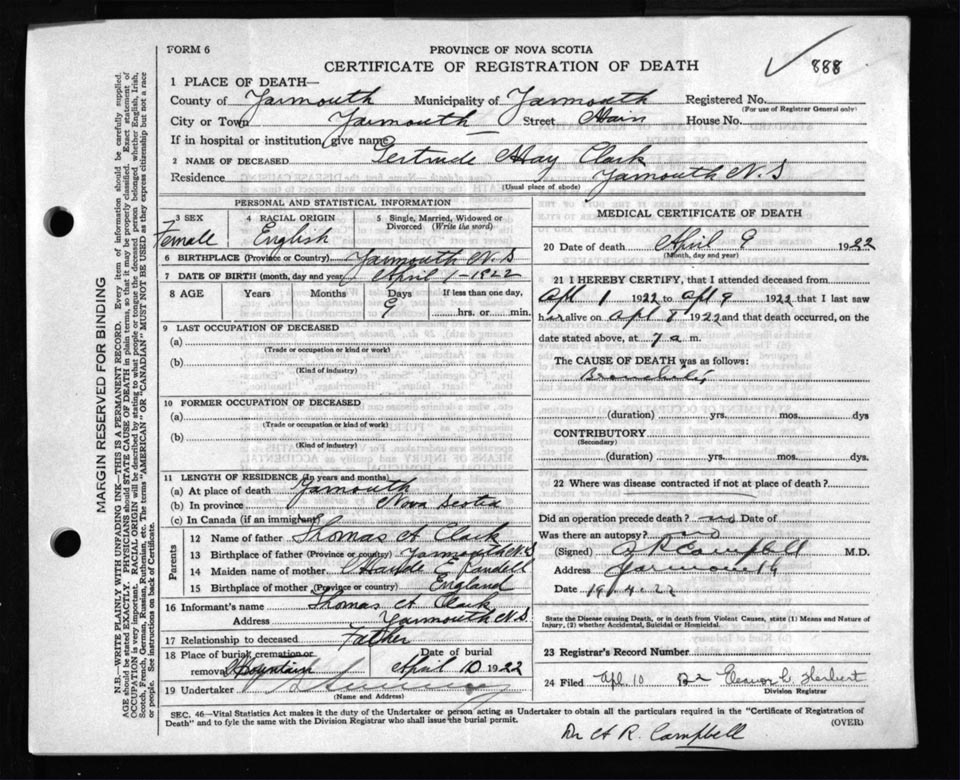 FORM 6
PROVINCE OF NOVA SCOTIA
CERTIFICATE OF REGISTRATION OF DEATH
888
1 PLACE OF DEATH—
County of Yarmouth Municipality of Yarmouth Registered No.
(For use of Registrar General only)
City or Town Yarmouth Street Main House No.
If in hospital or institution, give name
2 NAME OF DECEASED Gertrude May Clark
Residence Yarmouth N.S
(Usual place of abode)
PERSONAL AND STATISTICAL INFORMATION
3 SEX 4 RACIAL ORIGIN 5 Single, Married, Widowed or Divorced (Write the word)
Female English
6 BIRTHPLACE (Province or Country) Yarmouth N.S
7 DATE OF BIRTH (month, day and year) April 1-1922
8 AGE Years Months Days If less than one day,
9 hrs. or min.
9 LAST OCCUPATION OF DECEASED
(a)
(Trade or occupation or kind or work)
(b)
(Kind of industry)
10 FORMER OCCUPATION OF DECEASED
(a)
(Trade or occupation or kind or work)
(b)
(Kind of industry)
11 LENGTH OF RESIDENCE (In years and months)
(a) At place of death Yarmouth
(b) In province Nova Scotia
(c) In Canada (if an immigrant)
Parents
12 Name of father Thomas A Clark
13 Birthplace of father (Province or country) Yarmouth N.S
14 Maiden name of mother E
15 Birthplace of mother (Province or country) England
16 Informant's name Thomas A Clark
Address Yarmouth N.S.
17 Relationship to deceased Father
18 Place of burial, cremation or removal Mountain Date of burial April 10 1922
19 Undertaker
(Name and Address)
MEDICAL CERTIFICATE OF DEATH
20 Date of death April 9 1922
(Month, day and year)
21 I HEREBY CERTIFY, that I attended deceased from
Apl 1 1922 to Apl 9 1922 that I last saw
her alive on Apl 8 1922 and that death occurred, on
date stated above, at 7 a m.
The CAUSE OF DEATH was as follows:
Bronchitis
(duration) yrs. mos. dys
CONTRIBUTORY
(Secondary)
(duration) yrs. mos. dys.
22 Where was disease contracted if not at place of death?
Did an operation precede death? no Date of
Was there an autopsy? no
(Signed) A R Campbell M.D.
Address Yarmouth
Date 19.4.22
State the Disease causing Death, or in death from Violent Causes, state (1) Means and Nature of
Injury, (2) whether Accidental, Suicidal or Homicidal.
23 Registrar's Record Number
24 Filed Apl 10 Eleanor C Herbert
Division Registrar
SEC. 46—Vital Statistics Act makes it the duty of the Undertaker or person acting as Undertaker to obtain all the particulars required in the "Certificate of Registration of
Death" and to fyle the same with the Division Registrar who shall issue the burial permit. (OVER)
Dr A R. Campbell
MARGIN RESERVED FOR BINDING
N.B.—WRITE PLAINLY WITH UNFADING INK—THIS IS A PERMANENT RECORD. Every item of information should be carefully supplied.
AGE should be stated EXACTLY. PHYSICIANS should STATE CAUSE OF DEATH in plain terms, so that it may be properly classified. Exact statement of
OCCUPATION is very important. RACIAL ORIGIN will be described by stating to what people or tongue the deceased person belonged whether English, Irish,
Scotch, French, German, Russian, Ruthenian, etc. The terms "AMERICAN" OR "CANADIAN" MUST NOT BE USED as they express citizenship but not a race
or people. See instructions on back of Certificate.